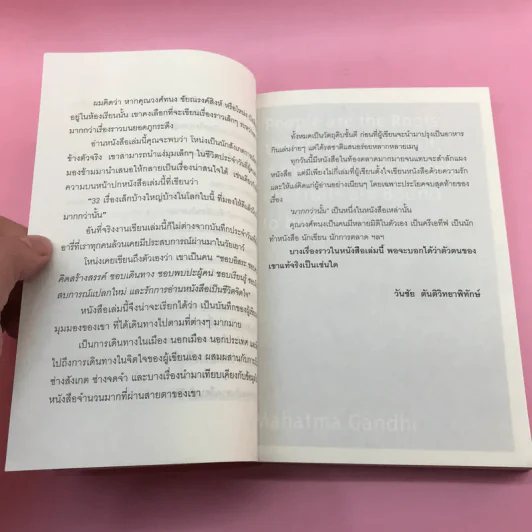 ผมคิดว่า หากคุณวงศ์ทนง ชัยณรงค์สิงห์ หรือโหน่ง
อยู่ในห้องเรียนนั้น เขาคงเลือกที่จะเขียนเรื่องราวเล็กๆ
มากกว่าเรื่องราวบนยอดภูกระดึง
อ่านหนังสือเล่มนี้คุณจะพบว่า โหน่งเป็นนักสังเกตการณ์
ข้างตัวจริง เขาสามารถนำแง่มุมเล็กๆ ในชีวิตประจำวันที่ผู้คน
มองข้ามมานำเสนอให้กลายเป็นเรื่องน่าสนใจได้ เป็นเหตุ
ความบนหน้าปกหนังสือเล่มนี้ที่เขียนว่า
"32 เรื่องเล็กบ้างใหญ่บ้างในโลกใบนี้ ที่มองให้ดีแล้ว
มากกว่านั้น"
อันที่จริงงานเขียนเล่มนี้ก็ไม่ต่างจากบันทึกประจำวัน
อารี่ที่เราทุกคนล้วนเคยมีประสบการณ์ผ่านมาในวัยเยาว์
โหน่งเคยเขียนถึงตัวเองว่า เขาเป็นคน "ชอบอิสระ
คิดสร้างสรรค์ ชอบเดินทาง ชอบพบปะผู้คน ชอบเรียนรู้
สบการณ์แปลกใหม่ และรักการอ่านหนังสือเป็นชีวิตจิตใจ"
หนังสือเล่มนี้จึงน่าจะเรียกได้ว่า เป็นบันทึกของผู้
มุมมองของเขา ที่ได้เดินทางไปตามที่ต่างๆ มากมาย
เป็นการเดินทางในเมือง นอกเมือง นอกประเทศ และ
ไปถึงการเดินทางในจิตใจของผู้เขียนเอง ผสมผสานกับการ
ช่างสังเกต ช่างจดจำ และบางเรื่องนำมาเทียบเคียงกับข้อมูล
หนังสือจำนวนมากที่ผ่านสายตาของเขา
People are the Roots
ทั้งหมดเป็นวัตถุดิบชั้นดี ก่อนที่ผู้เขียนจะนำมาปรุงเป็นอาหาร
กินเล่นง่ายๆ แต่ได้รสชาติแสนอร่อยหลากหลายเมนู
ทุกวันนี้มีหนังสือในท้องตลาดมากมายจนแทบจะสำลักแผง
หนังสือ แต่มีเพียงไม่กี่เล่มที่ผู้เขียนตั้งใจเขียนหนังสือด้วยความรัก
และให้แง่คิดแก่ผู้อ่านอย่างเนียนๆ โดยเฉพาะประโยคจบสุดท้ายของ
เรื่อง
'มากกว่านั้น' เป็นหนึ่งในหนังสือเหล่านั้น
คุณวงศ์ทนงเป็นคนมีหลายมิติในตัวเอง เป็นครีเอทีฟ เป็นนัก
ทำหนังสือ นักเขียน นักการตลาด ฯลฯ
บางเรื่องราวในหนังสือเล่มนี้ พอจะบอกได้ว่าตัวตนของ
เขาแท้จริงเป็นเช่นใด
วันชัย ตันติวิทยาพิทักษ์
Mahatma Gandhi